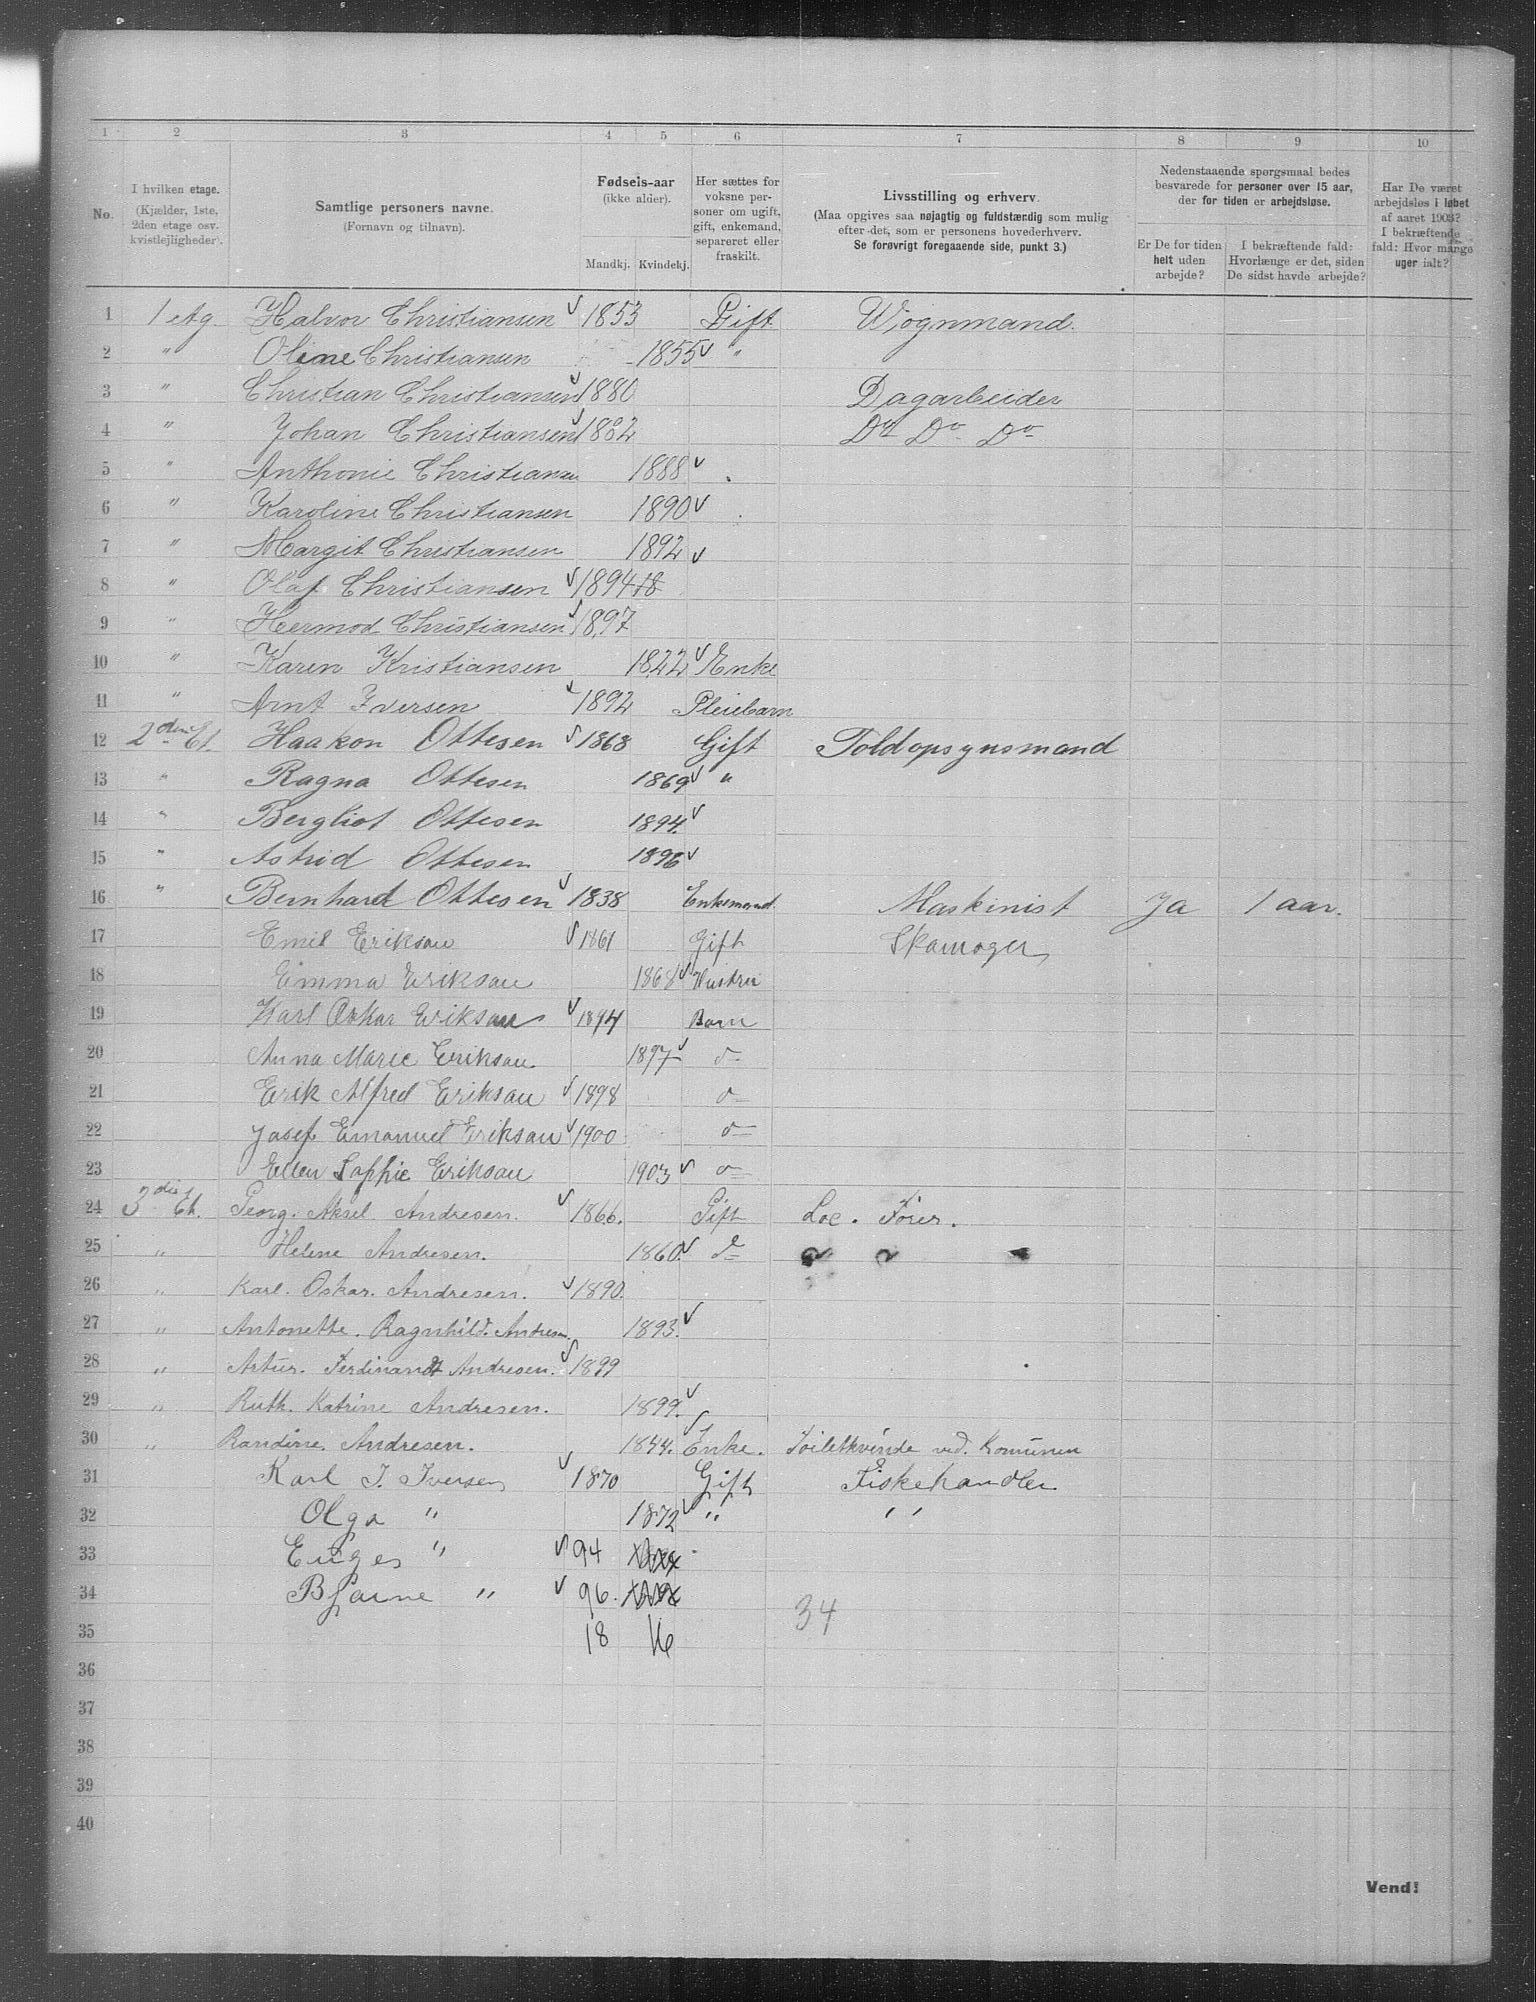 1 2 3 4 5 6 7 8 9 10
No.
I hvilken etage.
(Kjælder, 1ste,
2den etage osv.
kvistlejligheder).
Samtlige personers navne.
(Fornavn og tilnavn).
Fødsels-aar
(ikke alder).
Mandkj. Kvindekj.
Her sættes for
voksne per-
soner om ugift,
gift, enkemand,
separeret eller
fraskilt.
Livsstilling og erhverv.
(Maa opgives saa nøjagtig og fuldstændig som mulig
efter det, som er personens hovederhverv.
Se forøvrigt foregaaende side, punkt 3.)
Nedenstaaende spørgsmaal bedes
besvarede for personer over 15 aar,
der for tiden er arbejdsløse.
Er De for tiden
helt uden
arbejde?
I bekræftende fald:
Hvorlænge er det, siden
De sidst havde arbejde?
Har De været
arbejdsløs i løbet
af aaret 1903?
I bekræftende
fald: Hvor mange
uger ialt?
1 1 etg. Halvor Christiansen 1853 Gift Wognmand.
2 " Oline Christiansen 1855 "
3 " Christian Christiansen 1880 Dagarbeider
4 " Johan Christiansen 1882 Do Do Do
5 " Anthonie Christiansen 1888
6 " Karoline Christiansen 1890
7 " Margit Christiansen 1892
8 " Olaf Christiansen 1894 18
9 " Hermod Christiansen 1897
10 " Karen Kristiansen 1822 Enke
11 " Arnt Iversen 1892 Pleiebarn
12 2den Et. Haakon Ottesen 1868 Gift Toldopsynsmand
13 " Ragna Ottesen 1869 "
14 " Bergliot Ottesen 1894.
15 " Astrid Ottesen 1896
16 " Bernhard Ottesen 1838 Enkemand. Maskinist Ja 1 aar.
17 Emil Eriksau 1861 Gift Skomager
18 Emma Eriksau 1868 Hustru
19 Karl Oskar Eriksau 1894 Barn
20 Anna Marie Eriksau 1897 d
21 Erik Alfred Eriksau 1898 d
22 Josef Emanuel Eriksau 1900 d
23 Ellen Sophie Eriksau 1903 d
24 3die Et. Georg. Aksel Andresen. 1866. Gift Loc. Fører.
25 " Helene Andresen. 1860. d
26 " Karl. Oskar. Andresen. 1890.
27 " Antonette. Ragnhild. Andresen. 1893.
28 " Artur. Ferdinandt Andresen. 1899
29 " Ruth. Katrine Andresen. 1899.
30 " Randine. Andresen. 1844. Enke. Toiletkvinde ved. Komunen
31 Karl J. Iversen 1870 Gift Fiskehandler
32 Olga " 1872 " "
33 " 94
34 Bjarne " 96.
35 18 16 34
36
37
38
39
40
Vend!